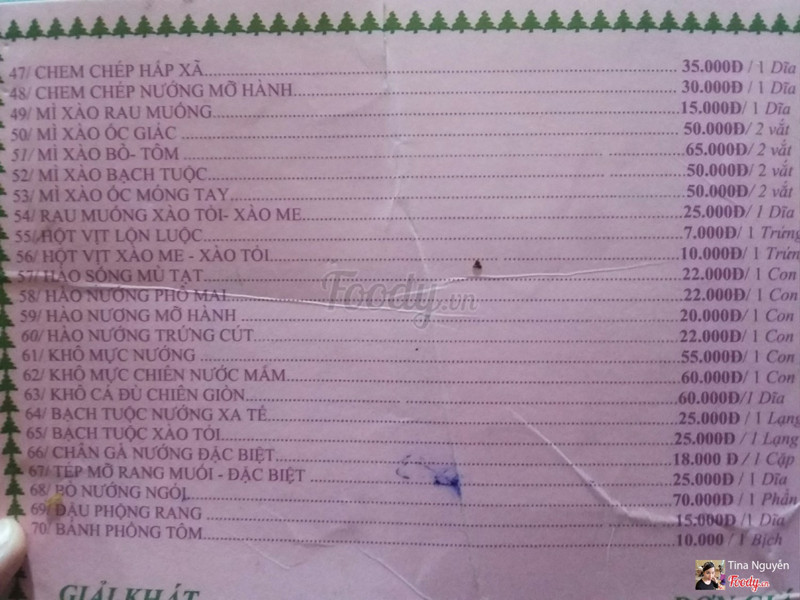 47/ CHEM CHÉP HẤP XÃ 35.000Đ / 1 Dĩa
48/ CHEM CHÉP NƯỚNG MỠ HÀNH 30.000Đ / 1 Dĩa
49/ MÌ XÀO RAU MUỐNG 15.000Đ / 1 Dĩa
50/ MÌ XÀO ỐC GIÁC 50.000Đ/ 2 vắt
51/ MÌ XÀO BÒ- TÔM 65.000Đ/ 2 vắt
52/ MÌ XÀO BẠCH TUỘC 50.000Đ/ 2 vắt
53/ MÌ XÀO ỐC MÓNG TAY 50.000Đ/ 2 vắt
54/ RAU MUỐNG XÀO TỎI- XÀO ME 25.000Đ/ 1 Dĩa
55/ HỘT VỊT LỘN LUỘC 7.000Đ/ 1 Trứng
56/ HỘT VỊT XÀO ME - XÀO TỎI 10.000Đ/ 1 Trứn
57/ HÀO SỐNG MÙ TẠT 22.000Đ/ 1 Con
58/ HÀO NƯỚNG PHÔ MAI 22.000Đ/ 1 Con
59/ HÀO NƯƠNG MỠ HÀNH 20.000Đ/ 1 Con
60/ HÀO NƯỚNG TRỨNG CÚT 22.000Đ/ 1 Con
61/ KHÔ MỰC NƯỚNG 55.000Đ/ 1 Con
62/ KHÔ MỰC CHIÊN NƯỚC MẮM 60.000Đ/ 1 Con
63/ KHÔ CÁ ĐÙ CHIÊN GIÒN 60.000Đ/1 Dĩa
64/ BẠCH TUỘC NƯỚNG XA TẾ 25.000Đ/ 1 Lạng
65/ BẠCH TUỘC XÀO TỎI 25.000Đ/ 1 Lạng
66/ CHÂN GÀ NƯỚNG ĐẶC BIỆT 18.000 Đ/ 1 Cặp
67/ TÉP MỠ RANG MUỐI - ĐẶC BIỆT 25.000Đ/ 1 Dĩa
68/ BÒ NƯỚNG NGÓI 70.000Đ/ 1 Phần
69/ ĐẬU PHỘNG RANG 15.000Đ /1 Dĩa
70/ BÁNH PHỒNG TÔM 10.000 / 1 Bịch
GIẢI KHÁT
Foody.vn
Tina Nguyễn
Foody.vn